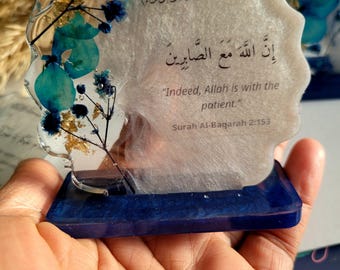 إِنَّ اللَّهَ مَعَ الصَّابِرِينَ
"Indeed, Allah is with the
patient."
Surah Al-Baqarah 2:153